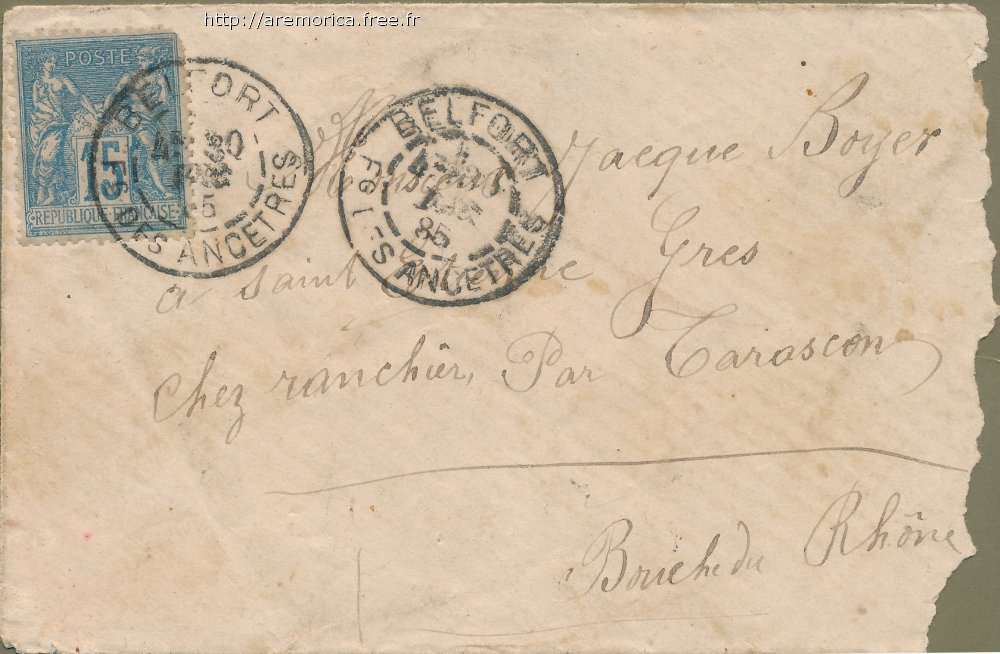 http://aremorica.free.fr
POSTE
15
REPUBLIQUE FRANCAISE
BELFORT
85
FG DES ANCETRES
BELFORT
85
FG DES ANCETRES
Monsieur Jacque Boyer
a saint Etienne Gres
chez ranchier, Par Tarascon
Bouche du Rhône